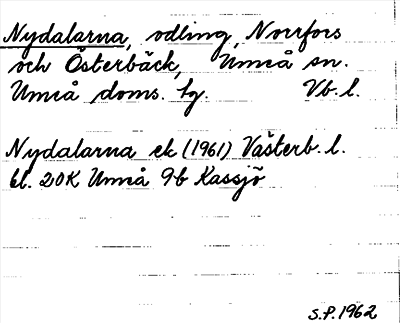 Nydalarna, odling, Norrfors
och Österbäck, Umeå sn.
Umeå doms. tg. Vb. l.
Nydalarna ek (1961) Västerb. l.
bl. 20K Umeå 9b Kassjö
S.P. 1962